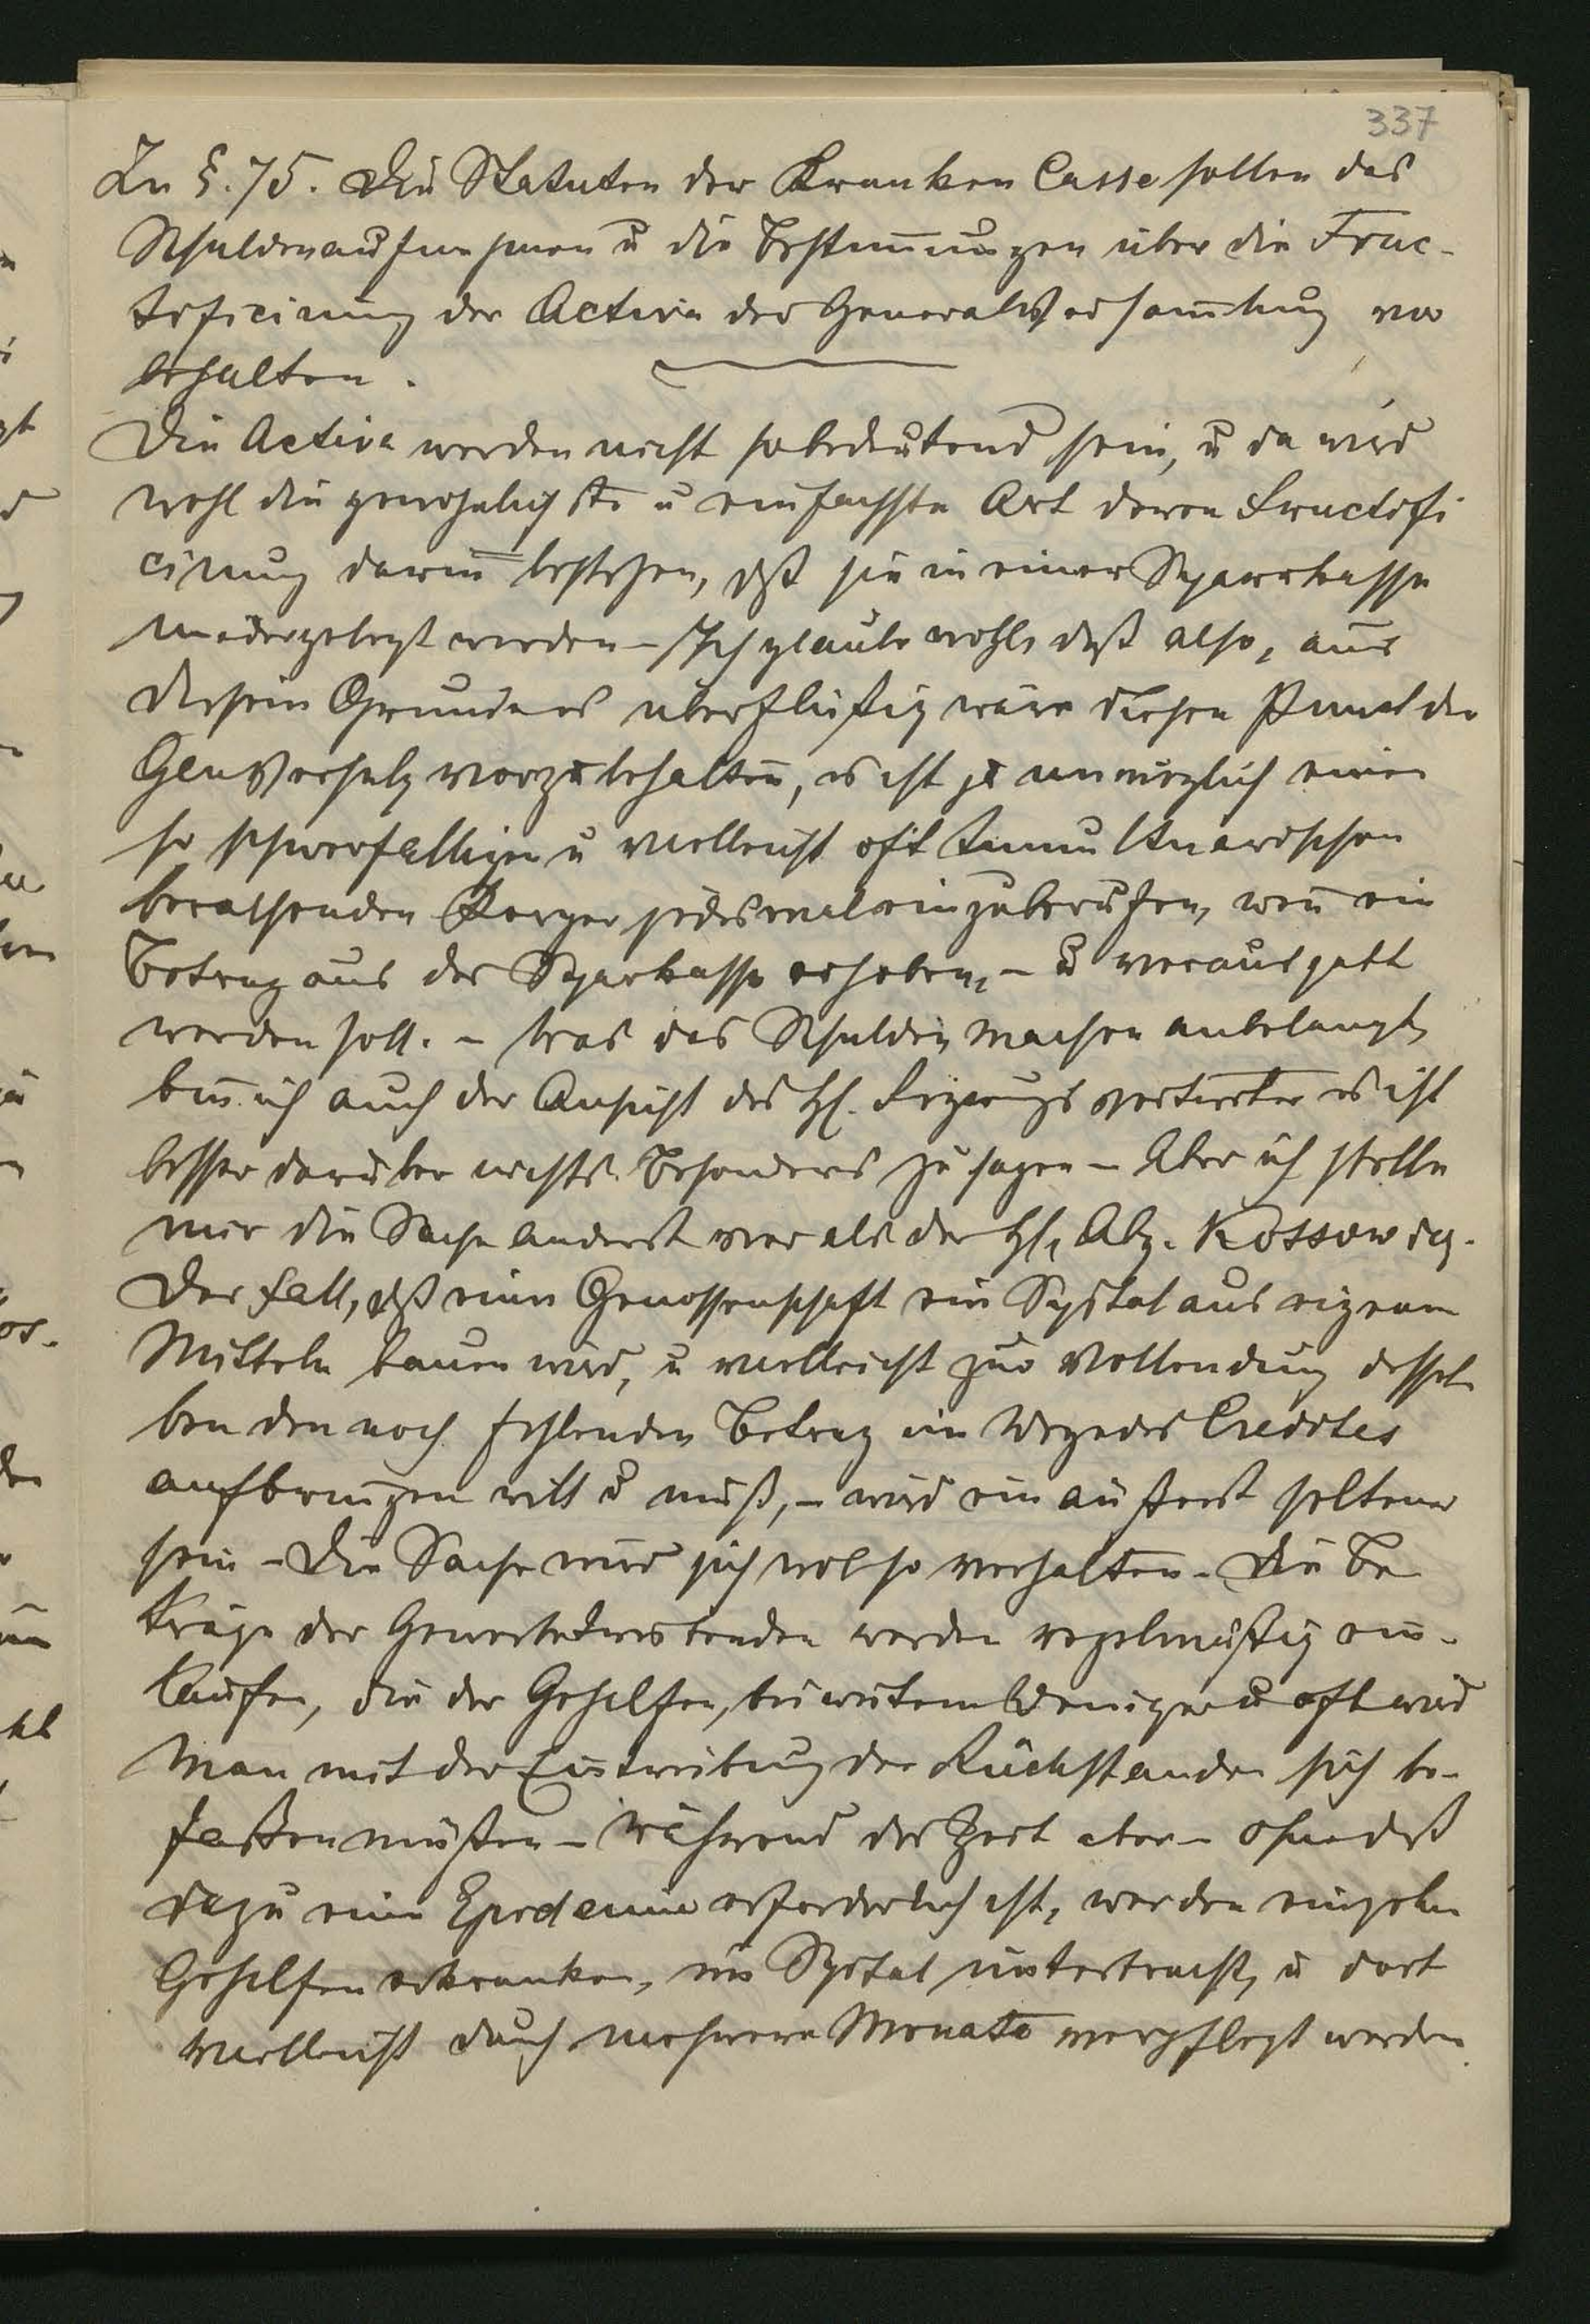 337
Zu §. 75. Die Statuten der Kranken Casse sollen das
Schuldenaufnehmen u die Bestimungen über die Fruc-
tificirung der Activa der GeneralVersamlung vor
behalten.
Die Activa werden nicht so bedeutend sein, u da wird
wohl die gewöhnlichste u einfachste Art deren Fructifi
cirung darin bestehen, dß sie in einer Sparkasse
niedergelegt werden – Ich glaube wohl, daß also, aus
diesem Grunde es überflüßig wäre diesen Punct der
GenVersalg vorzubehalten, es ist ja unmöglich einen
so schwerfälligen u vielleicht oft tumultuarischen
berathenden Körper jedesmal einzuberufen, wen ein
Betrag aus der Sparkasse erhoben, – u verausgabt
werden soll. – Was das Schulden machen anbelangt,
bin ich auch der Ansicht des H. Regierungsvertreter es ist
besser darüber nichts Besonderes zu sagen – Aber ich stelle
mir die Sache anderst vor als der H. Abg. Kossowicz.
Der Fall, dß eine Genossenschaft ein Spital aus eigenen
Mitteln bauen wird, u vielleicht zur Vollendung dessel
ben den noch fehlenden Betrag im Wege des Credites
aufbringen will u muß, – wird ein äußerst seltener
sein – Die Sache wird sich wol so verhalten – Die Be
träge der Gewerbetreibenden werden regelmäßig ein-
laufen, die der Gehilfen, bei weitem weniger u oft wird
man mit der Eintreibung der Rückstände sich be-
faßen müßen – während der Zeit aber – ohne daß
dazu eine Epidemie erforderlich ist, werden einzelne
Gehilfen erkranken, ins Spital unterbracht, u dort
vielleicht durch mehrere Monate verpflegt werden